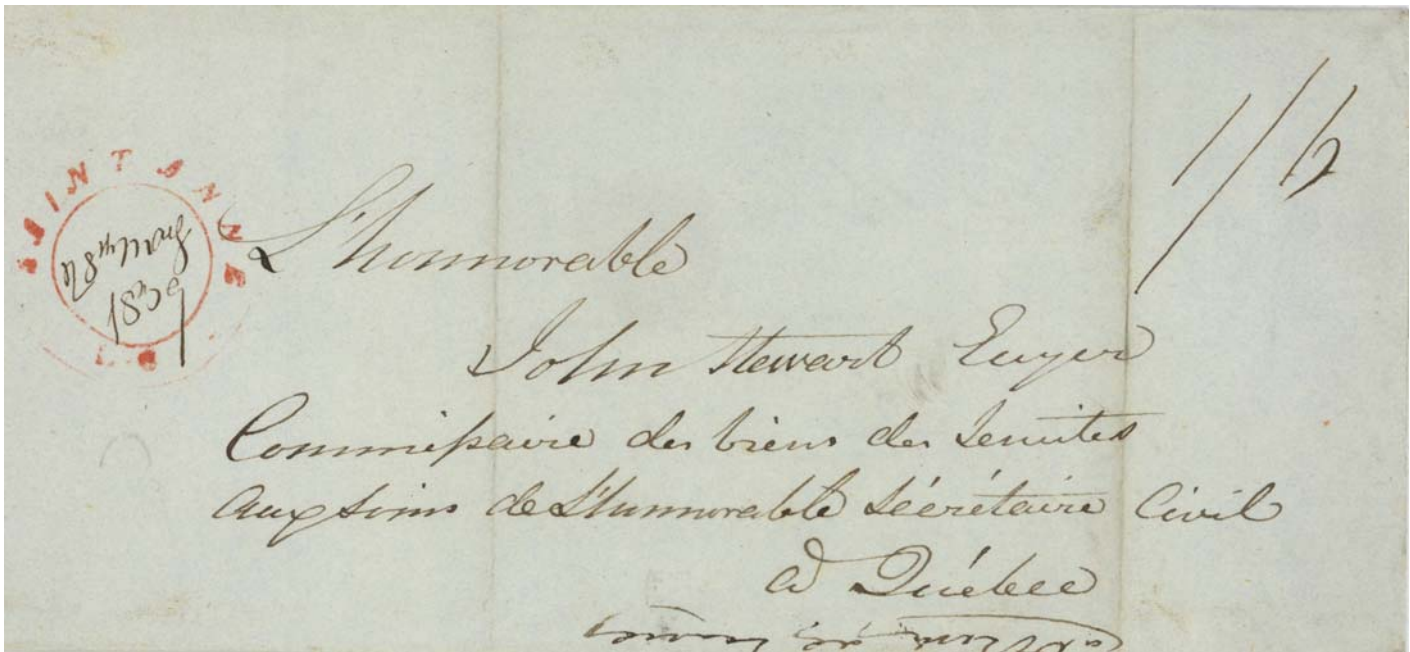 SAINT ANNE
L.C.
1/6
L'honnorable
John Stewart Ecuyer
Commissaire des biens des Jesuites
Aux soins de L'hunnorable Sécrétaire Civil
à Québec